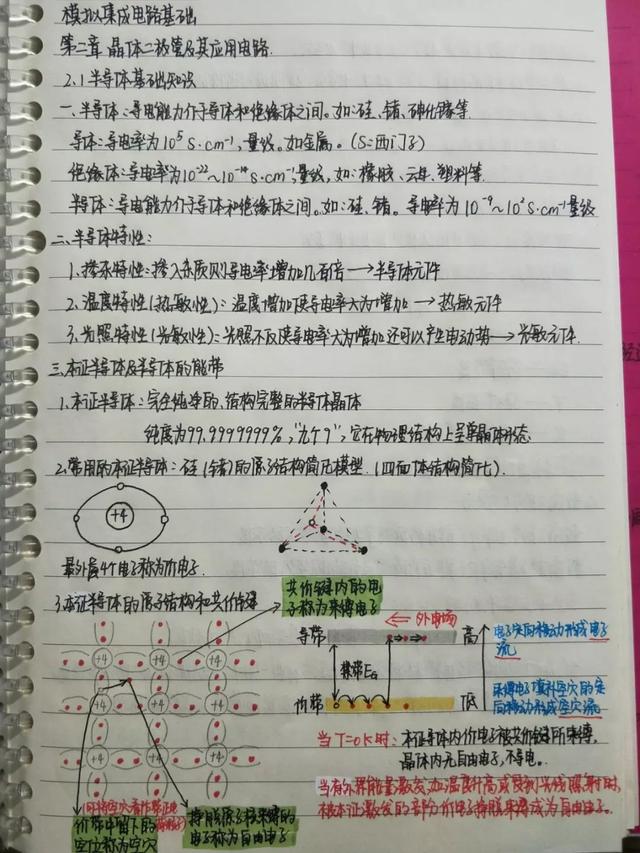 模拟集成电路基础
第二章 晶体二极管及其应用电路
2.1 半导体基础知识
一、半导体：导电能力介于导体和绝缘体之间。如：硅、锗、砷化镓等
导体：导电率为10⁵ S·cm⁻¹，量级。如金属。(S=西门子)
绝缘体：导电率为10⁻²²～10⁻¹⁴ S·cm⁻¹量级，如：橡胶、云母、塑料等
半导体：导电能力介于导体和绝缘体之间。如：硅、锗。导电率为10⁻⁹～10² S·cm⁻¹量级
二、半导体特性：
1、掺杂特性：掺入杂质则导电率增加几百倍→半导体元件
2、温度特性(热敏性)：温度增加使导电率大为增加→热敏元件
3、光照特性(光敏性)：光照不仅使导电率大为增加还可以产生电动势→光敏元件.
三、本证半导体及半导体的能带
1、本证半导体：完全纯净的、结构完整的半导体晶体
纯度为99.9999999%，"九个9"，它在物理结构上呈单晶体形态
2、常用的本证半导体：硅(锗)的原子结构简化模型.(四面体结构简化).
+4
最外层4个电子称为价电子.
3、本证半导体的原子结构和共价键
共价键内的电
子称为束缚电子
+4 +4 +4
+4 +4 +4
+4 +4 +4
价带中留下的
空位称为空穴
挣脱原子核束缚的
电子称为自由电子
← 外电场
导带
高
禁带E_G
价带
低
电子定向移动形成电子
流
束缚电子填补空穴的定
向移动形成空穴流
当T=0K时：本证导体内价电子被共价键所束缚，
晶体内无自由电子，不导电。
当有外界能量激发，如温度升高或受到光线照射时，
根本证激发的部分价电子挣脱束缚成为自由电子。